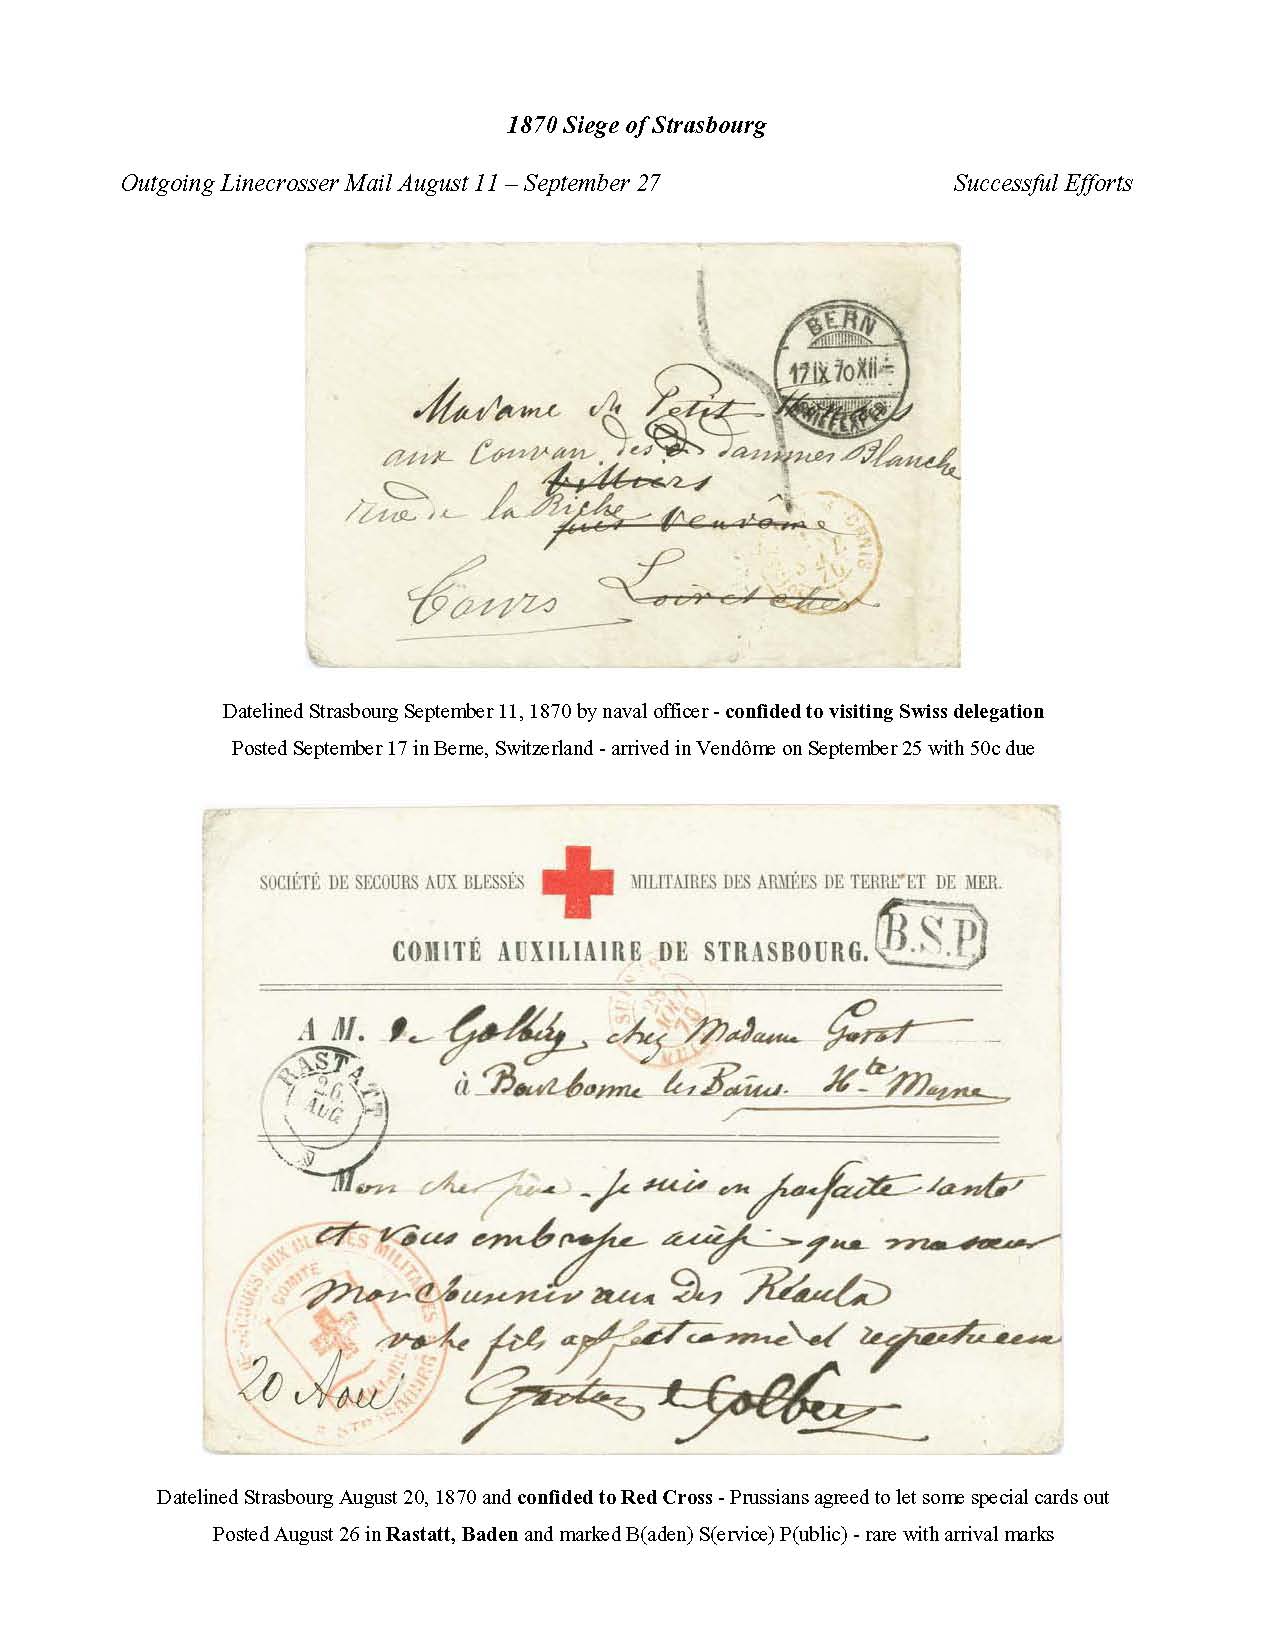 1870 Siege of Strasbourg
Outgoing Linecrosser Mail August 11 – September 27 Successful Efforts
BERN
17 IX 70 XII
BRIEFEXPED
Madame du Petit
aux Couvan des dammes Blanche
Villiers
rue de la Riche
près Vendôme
Tours Loir et cher
Datelined Strasbourg September 11, 1870 by naval officer - confided to visiting Swiss delegation
Posted September 17 in Berne, Switzerland - arrived in Vendôme on September 25 with 50c due
SOCIÉTÉ DE SECOURS AUX BLESSÉS MILITAIRES DES ARMÉES DE TERRE ET DE MER.
COMITÉ AUXILIAIRE DE STRASBOURG.
B.S.P
A M. de Golbéry, chez Madame Garot
RASTATT
26.
AUG
à Bourbonne les Bains. Hte Marne
28 AOUT 70
Mon cher père - Je suis en parfaite santé
et vous embrasse ainsi que ma sœur
Mon Souvenir aux Des Réaulx
votre fils affectionné et respectueux
20 Aout
Gaston de Golbery
SECOURS AUX BLESSÉS MILITAIRES
COMITÉ AUXILIAIRE
STRASBOURG
Datelined Strasbourg August 20, 1870 and confided to Red Cross - Prussians agreed to let some special cards out
Posted August 26 in Rastatt, Baden and marked B(aden) S(ervice) P(ublic) - rare with arrival marks